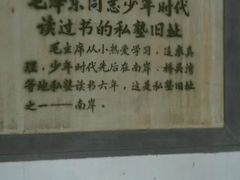 毛泽东同志少年时代
读过书的私塾旧址
毛主席从小热爱学习，追求真
理，少年时代先后在南岸、桥头湾
等地私塾读书六年，这是私塾旧址
之一——南岸。